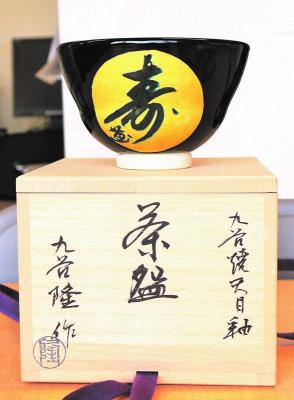 寿
九谷焼天目釉
茶盌
九谷隆作